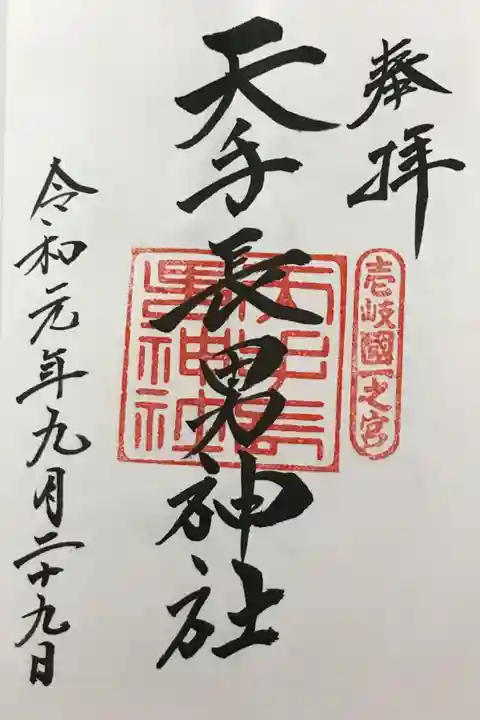 奉拝
壱岐國一之宮
天手長男神社
天手長男神社
令和元年九月二十九日